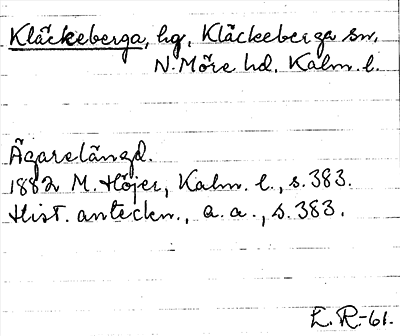 Kläckeberga, hg, Kläckeberga sn,
N. Möre hd, Kalm. l.
Ägarelängd.
1882 M. Höjer, Kalm. l., s. 383.
Hist. anteckn., a. a., s. 383.
E. R.-61.